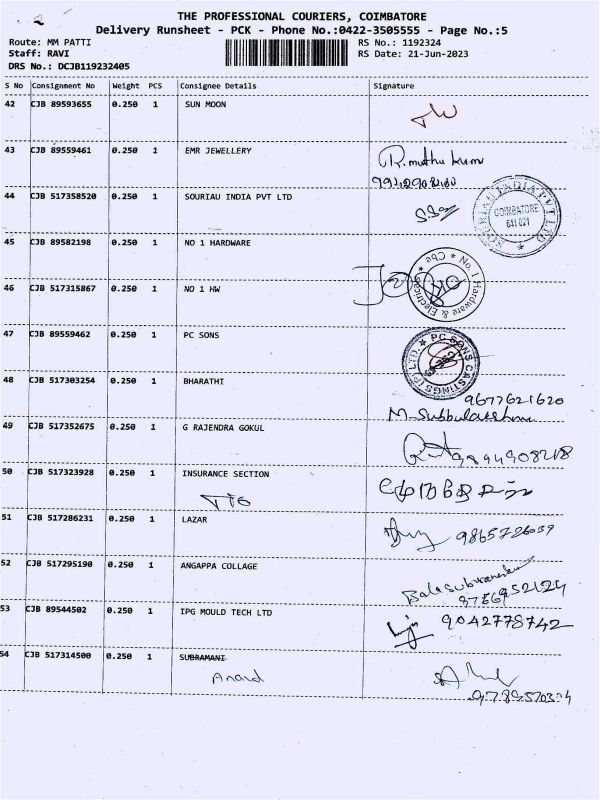 THE PROFESSIONAL COURIERS, COIMBATORE
Delivery Runsheet - PCK - Phone No.:0422-3505555 - Page No.:5
Route: MM PATTI RS No.: 1192324
Staff: RAVI RS Date: 21-Jun-2023
DRS No.: DCJB119232405
S No Consignment No Weight PCS Consignee Details Signature
42 CJB 89593655 0.250 1 SUN MOON
43 CJB 89559461 0.250 1 EMR JEWELLERY R.muthu kum
44 CJB 517358520 0.250 1 SOURIAU INDIA PVT LTD
SOURIAU INDIA PVT LTD COIMBATORE 641 021
45 CJB 89582198 0.250 1 NO 1 HARDWARE
No. 1 Hardware & Electricals Cbe
46 CJB 517315867 0.250 1 NO 1 HW
47 CJB 89559462 0.250 1 PC SONS
PC SONS CASTINGS (P) LTD.
48 CJB 517303254 0.250 1 BHARATHI 9677621620
M. Subbulakshmi
49 CJB 517352675 0.250 1 G RAJENDRA GOKUL 9894908218
50 CJB 517323928 0.250 1 INSURANCE SECTION
51 CJB 517286231 0.250 1 LAZAR
52 CJB 517295190 0.250 1 ANGAPPA COLLAGE
Balasubramaniam
53 CJB 89544502 0.250 1 IPG MOULD TECH LTD 9042778742
54 CJB 517314500 0.250 1 SUBRAMANI
Anand